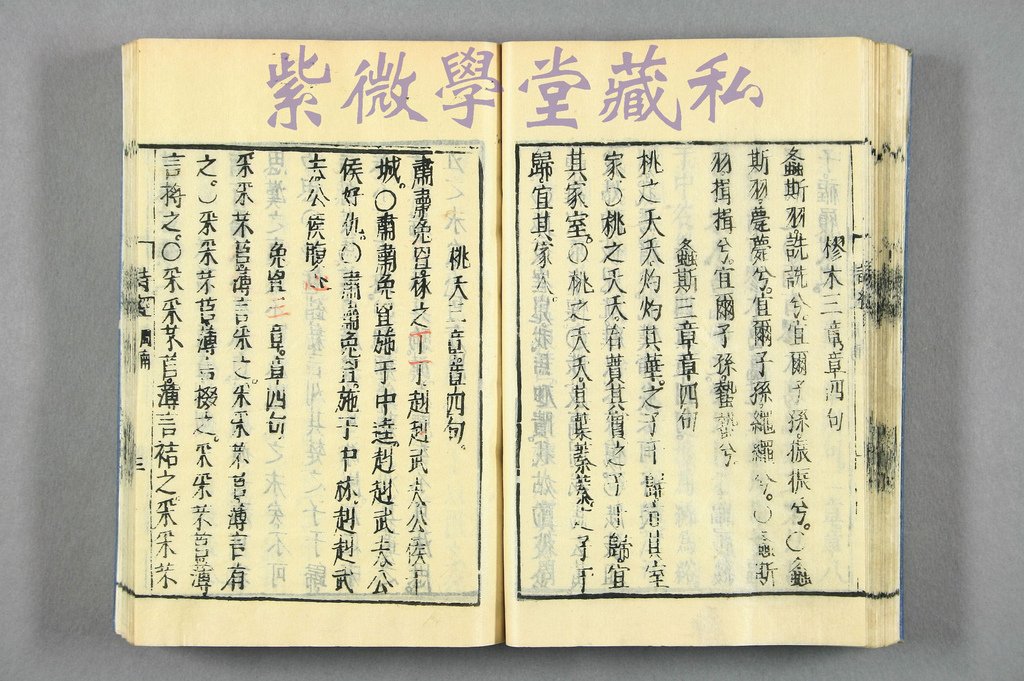 紫微學堂藏私
樛木三章章四句
螽斯羽。詵詵兮。宜爾子孫。振振兮。○螽
斯羽。薨薨兮。宜爾子孫。繩繩兮。○螽斯
羽。揖揖兮。宜爾子孫。蟄蟄兮。
螽斯三章章四句
桃之夭夭。灼灼其華。之子于歸。宜其室
家。○桃之夭夭。有蕡其實。之子于歸。宜
其家室。○桃之夭夭。其葉蓁蓁。之子于
歸。宜其家人。
桃夭三章。章四句。
肅肅兔罝。椓之丁丁。赳赳武夫。公侯干
城。○肅肅兔罝。施于中逵。赳赳武夫。公
侯好仇。○肅肅兔罝。施于中林。赳赳武
夫。公侯腹心。
兔罝三章。章四句
采采芣苢。薄言采之。采采芣苢。薄言有
之。○采采芣苢。薄言掇之。采采芣苢。薄
言捋之。○采采芣苢。薄言袺之。采采芣
詩經 周南 三